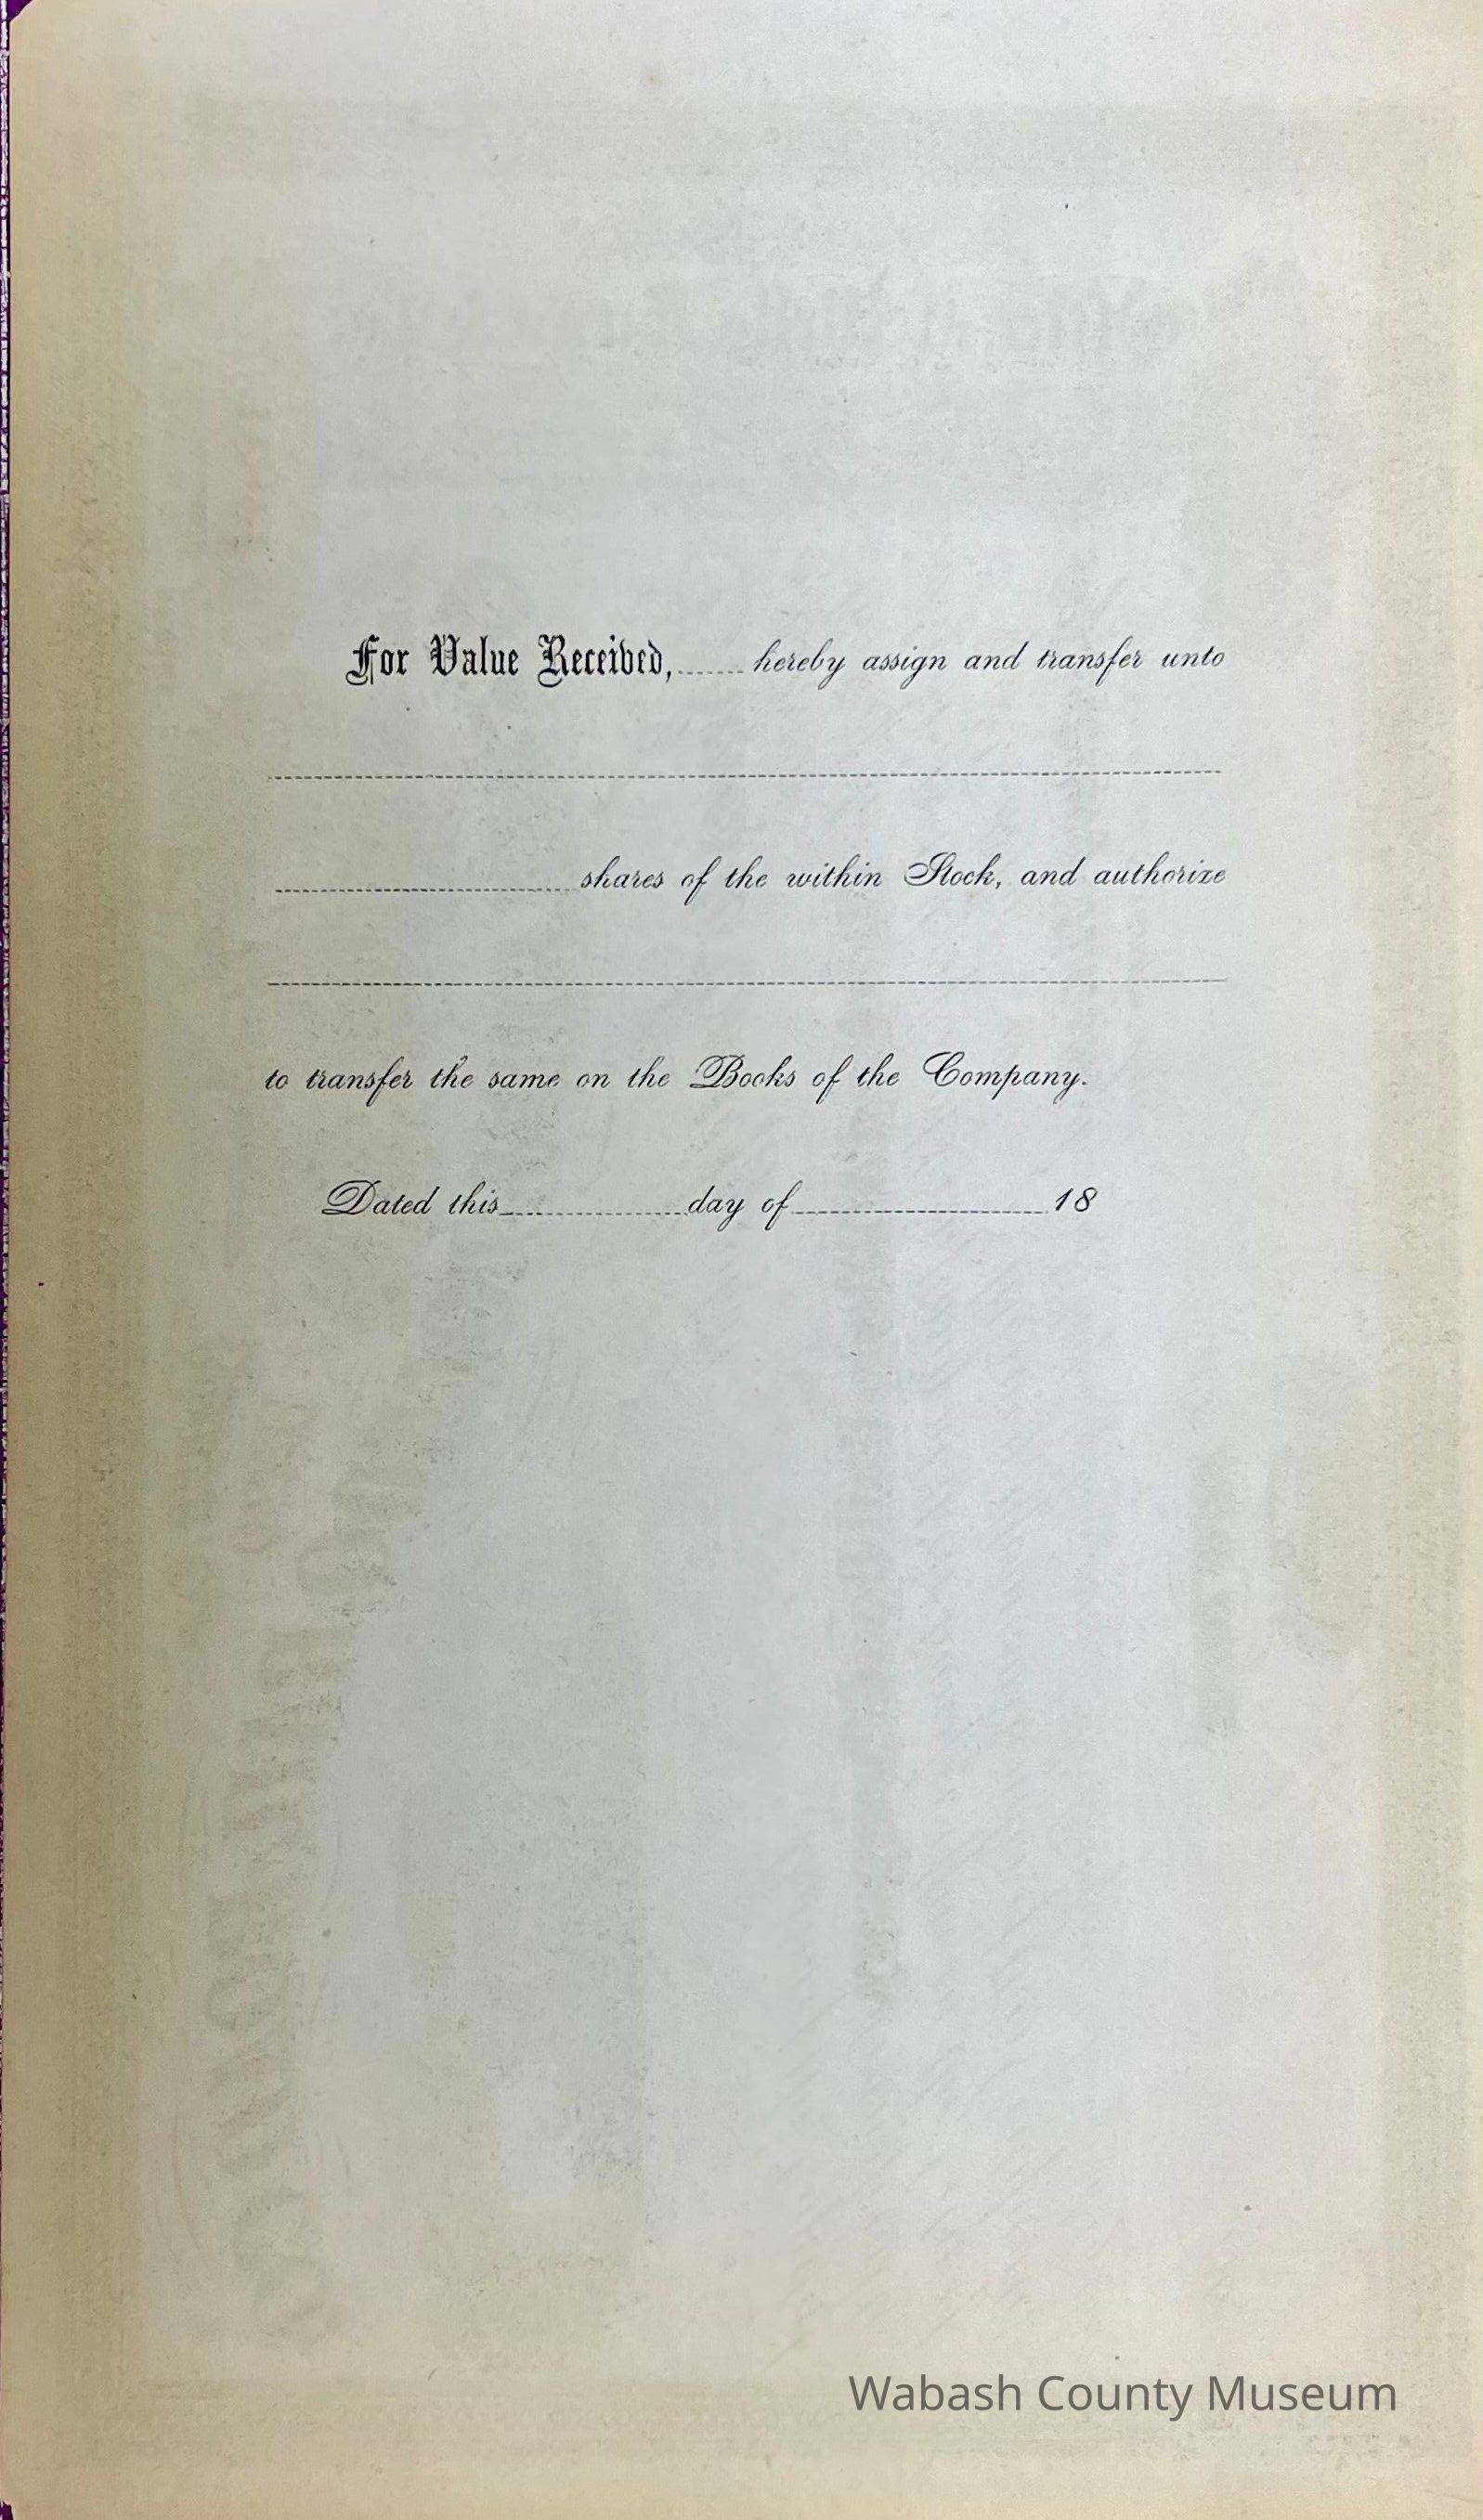 For Value Received, ........ hereby assign and transfer unto
shares of the within Stock, and authorize
to transfer the same on the Books of the Company.
Dated this .................... day of .................... 18
Wabash County Museum